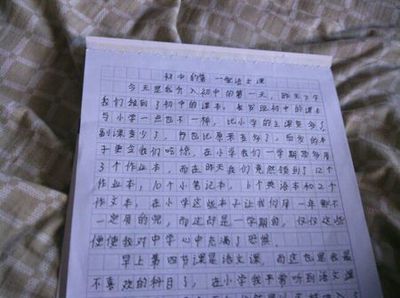 初中的第一堂语文课
今天是我介入初中的第一天，昨天下午
我们领到了初中的课本，我发现初中的课本
与小学一点也不一样，比小学的主课变多了，
副课变少了，书包比原来重多了，但发的本
子更令我们吃惊，在小学我们一学期顶多用
3个作业本，而在昨天我们竟然领到了12个
作业本，10个小笔记本，6个英语本和2个
作文本，在小学这些本子让我们用一年都不
一定用的完，而这却是一学期的，仅仅这些
便使我对中学心中充满了恐惧
早上第四节课是语文课，而这也是我最
不喜欢的科目了，在小学我平常听到语文课